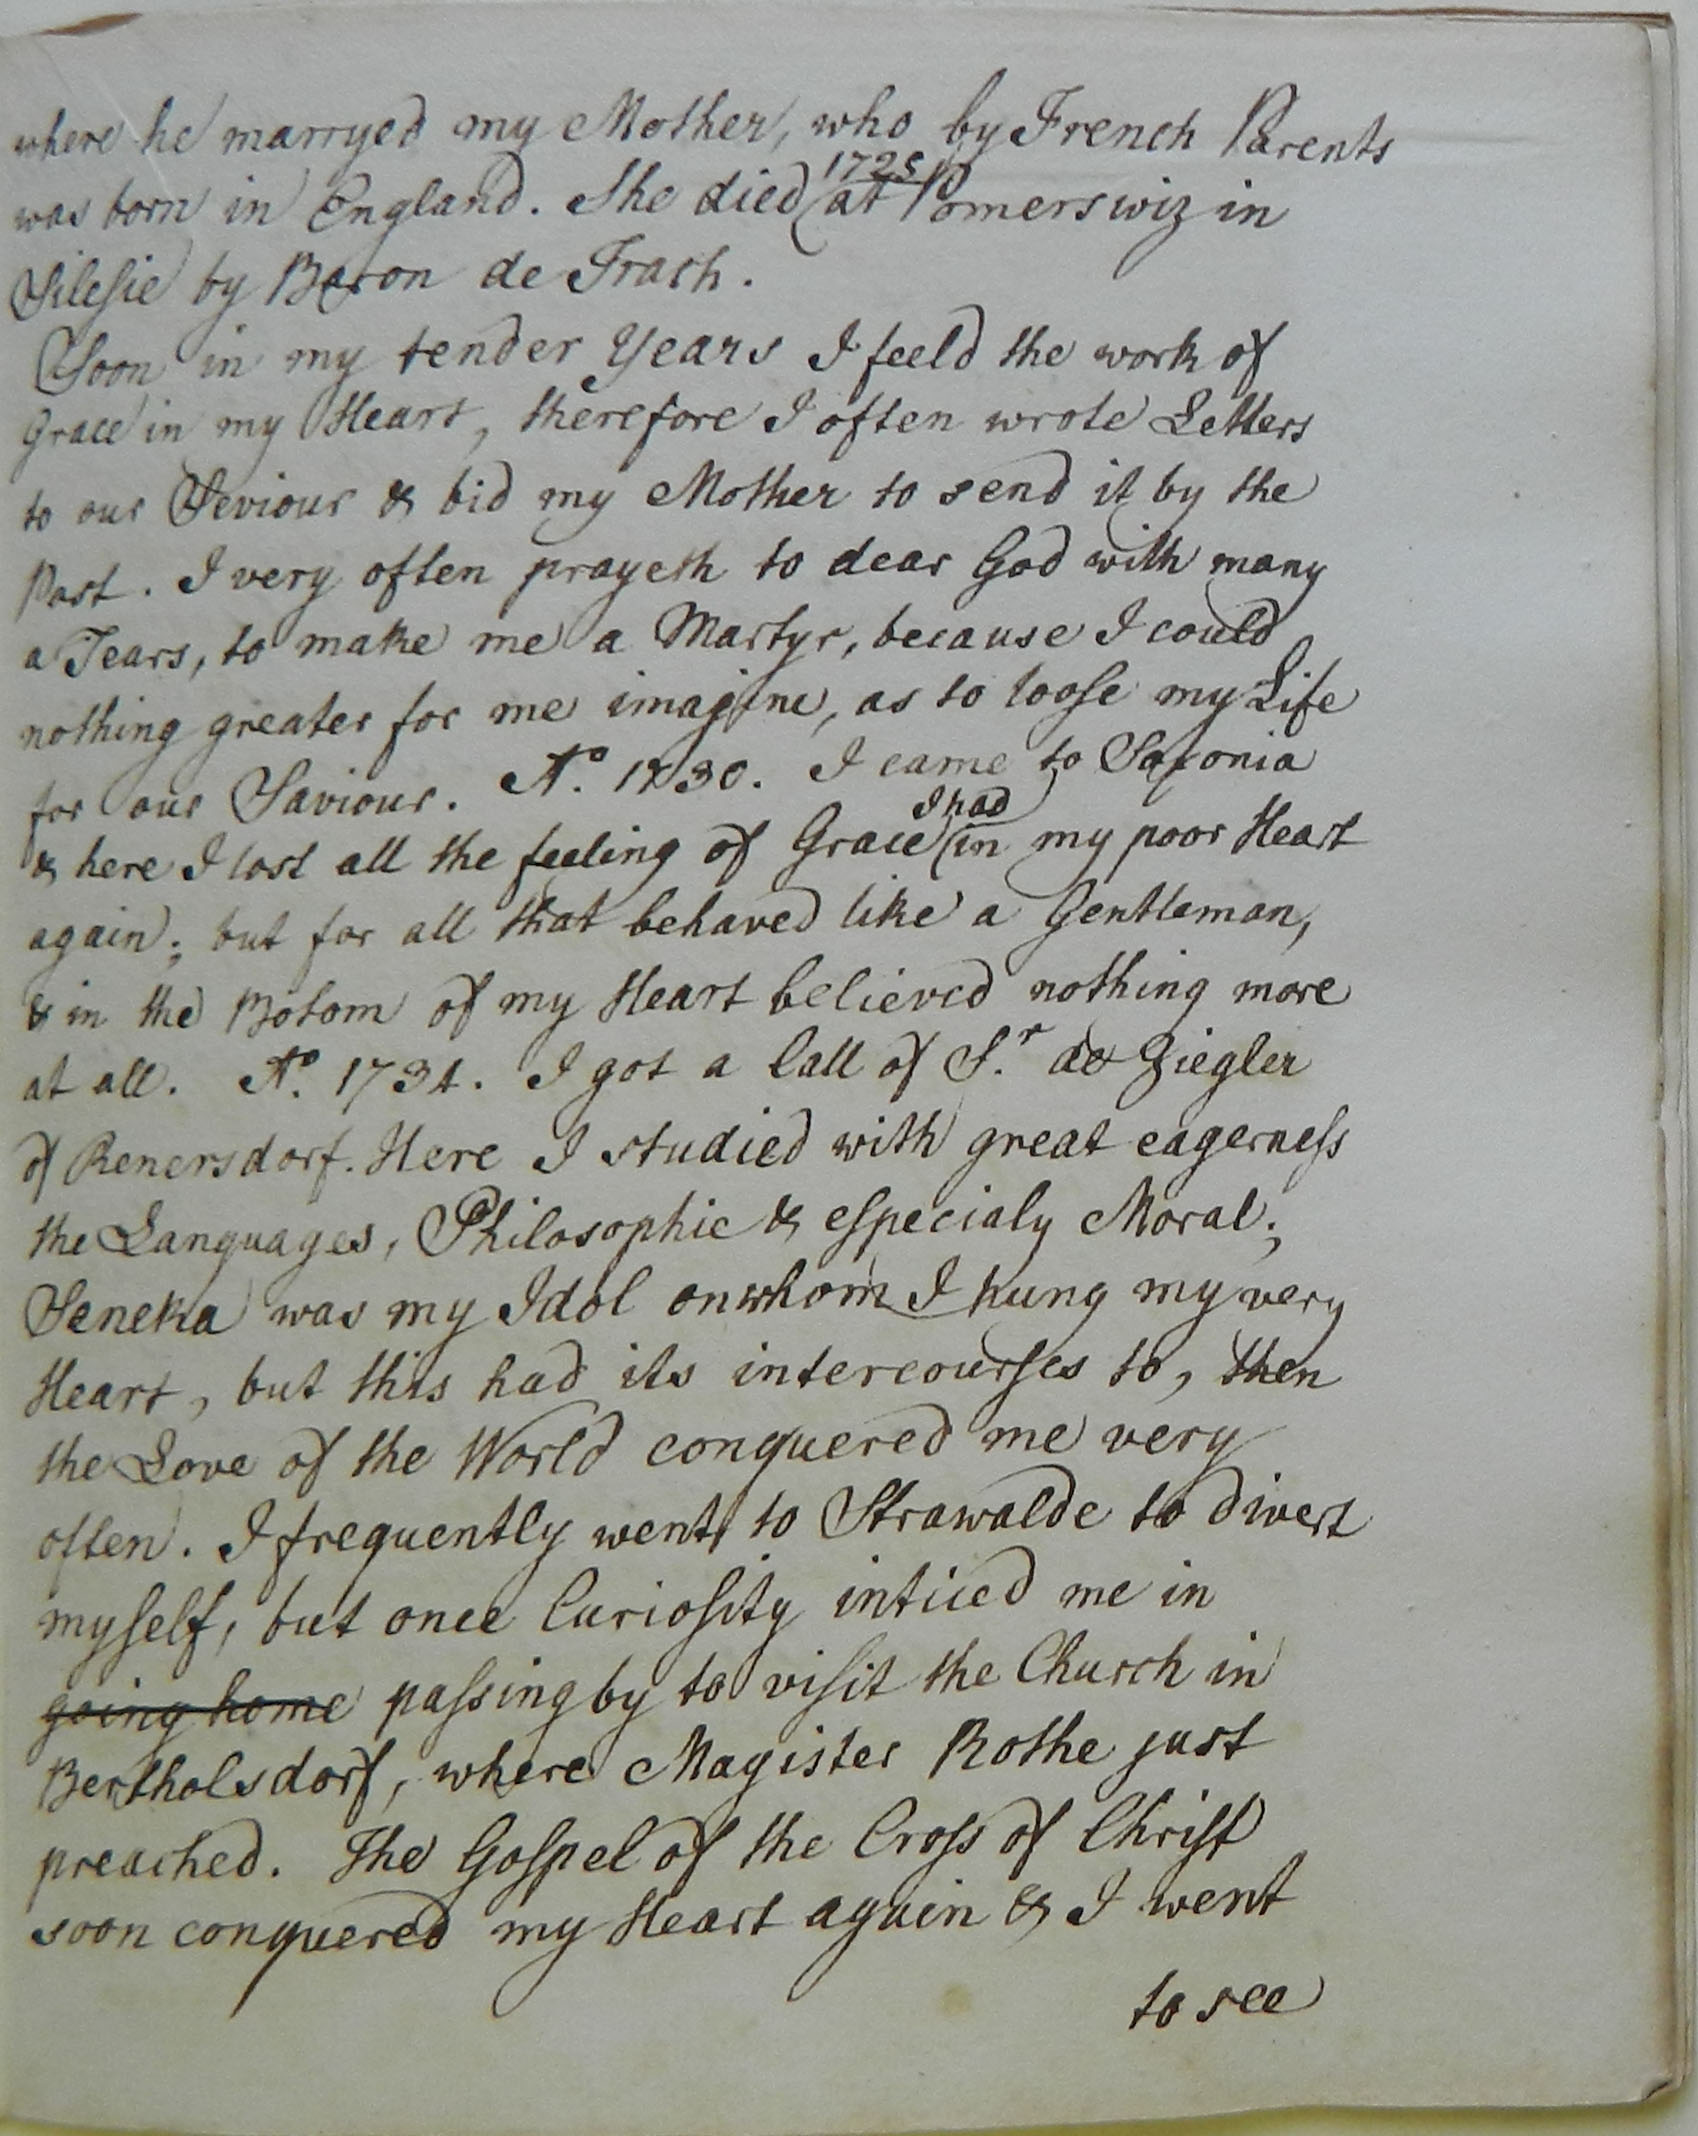 where he marryed my Mother, who by French Parents
was born in England. She died 1725 at Pomerswiz in
Silesie by Baron de Trach.
Soon in my tender Years I feeld the work of
Grace in my Heart, therefore I often wrote Letters
to our Seviour & bid my Mother to send it by the
Post. I very often prayeth to dear God with many
a Tears, to make me a Martyr, because I could
nothing greater for me imagine, as to loose my Life
for our Saviour. Ao. 1730. I came to Saxonia
& here I lost all the feeling of Grace I had in my poor Heart
again; but for all that behaved like a Gentleman,
& in the Botom of my Heart believed nothing more
at all. Ao. 1734. I got a Call of Sr. de Ziegler
of Renersdorf. Here I studied with great eagerness
the Languages, Philosophie & especialy Moral;
Seneka was my Idol on whom I hung my very
Heart, but this had its intercourses to, then
the Love of the World conquered me very
often. I frequently went to Strawalde to divert
myself, but once Curiosity inticed me in
going home passing by to visit the Church in
Bertholsdorf, where Magister Rothe just
preached. The Gospel of the Cross of Christ
soon conquered my Heart again & I went
to see